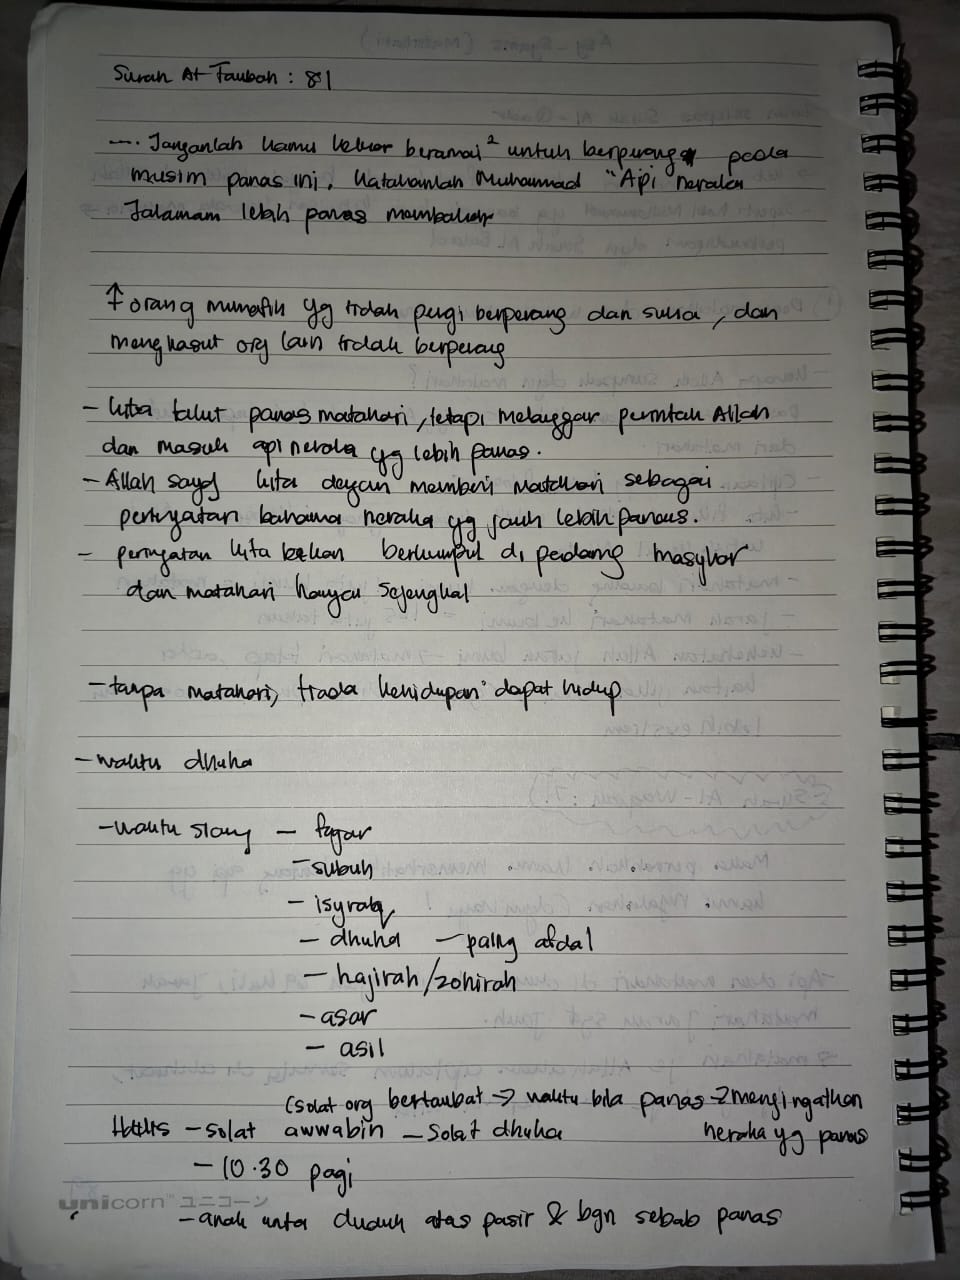 Surah At Taubah : 81
.... Janganlah kamu keluar beramai² untuk berperang pada
musim panas ini. Katakanlah Muhammad "Api neraka
Jahanam lebih panas membakar
↑ orang munafik yg tidak pergi berperang dan suka, dan
menghasut org lain tidak berperang
- kita takut panas matahari, tetapi melanggar perintah Allah
dan masuk api neraka yg lebih panas.
- Allah sayg kita dengan memberi matahari sebagai
peringatan bahawa neraka yg jauh lebih panas.
- peringatan kita akan berkumpul di padang masyhar
dan matahari hanya sejengkal
- tanpa matahari, tiada kehidupan dapat hidup
- waktu dhuha
- waktu siang - fajar
- subuh
- isyraq
- dhuha - paling afdal
- hajirah/zohirah
- asar
- asil
(solat org bertaubat → waktu bila panas → mengingatkan
Hadis - solat awwabin - solat dhuha neraka yg panas
- 10.30 pagi
unicorn™ ユニコーン
- anak unta duduk atas pasir & bgn sebab panas